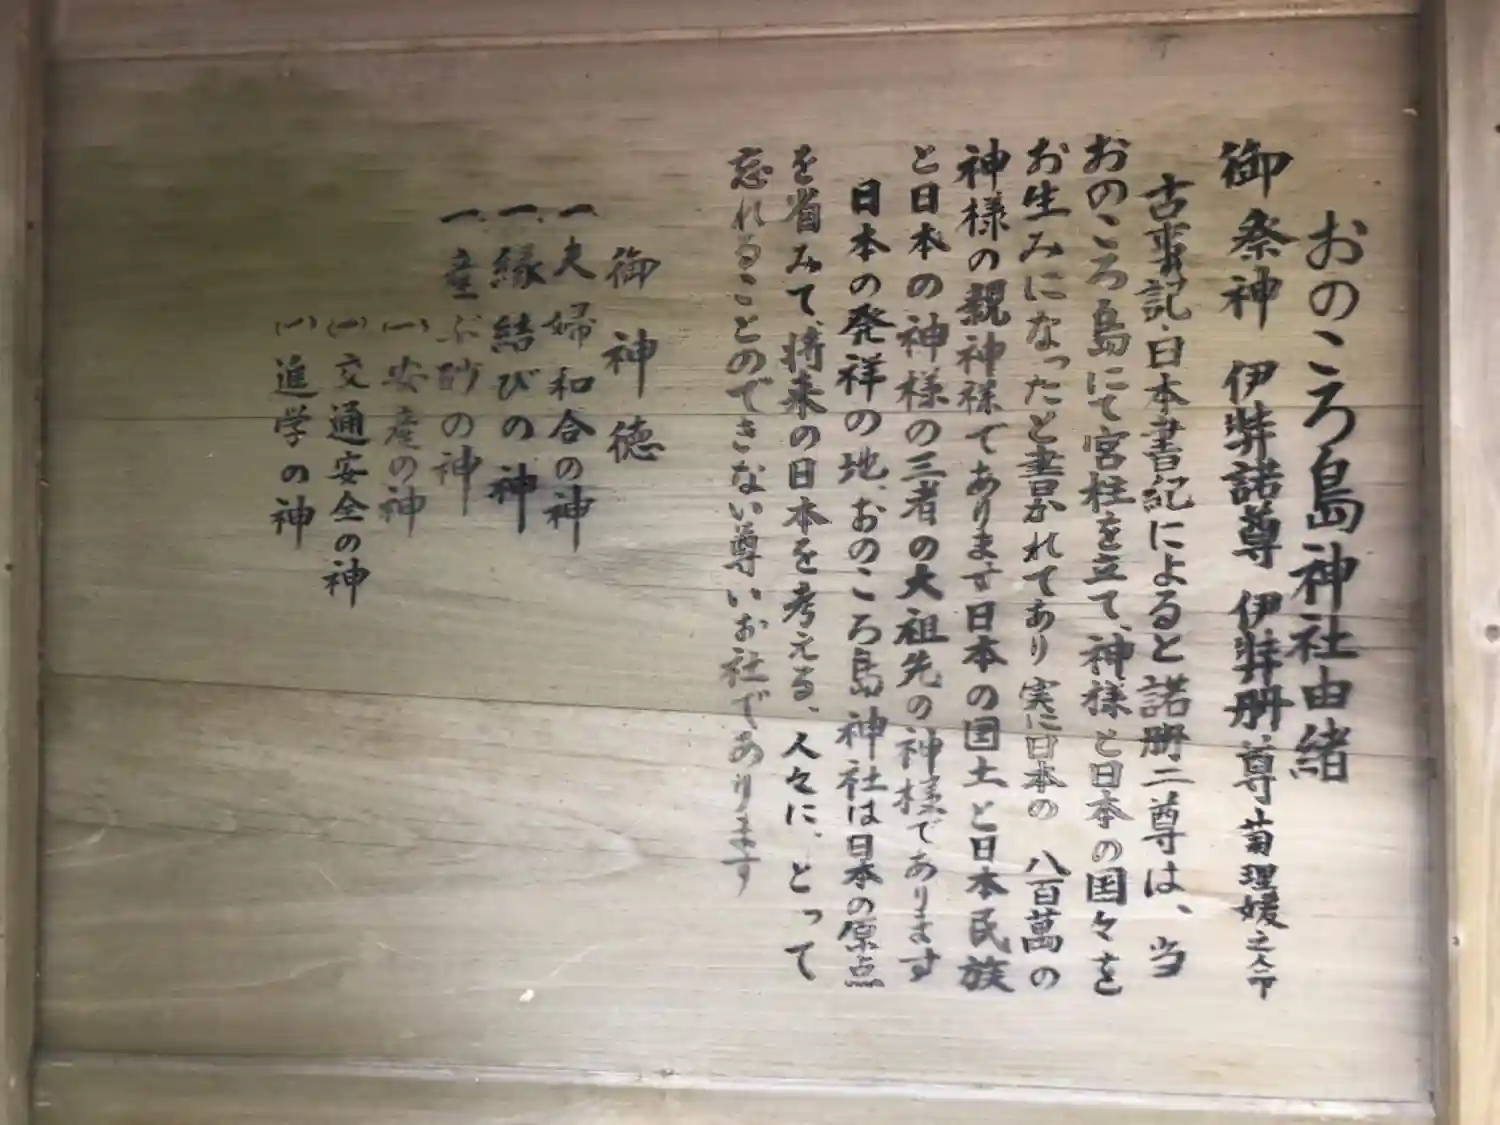 おのころ島神社由緒
御祭神 伊弉諾尊 伊弉冊尊・菊理媛之命
古事記・日本書紀によると諾冊二尊は、当
おのころ島にて宮柱を立て、神様と日本の国々を
お生みになったと書かれてあり実に日本の 八百萬の
神様の親神様であります日本の国土と日本民族
と日本の神様の三者の大祖先の神様であります
日本の発祥の地、おのころ島神社は日本の原点
を省みて、将来の日本を考える、人々に、とって
忘れることのできない尊いお社であります
御神徳
一、夫婦和合の神
一、縁結びの神
一、産ぶ砂の神
(一)安産の神
(一)交通安全の神
(一)進学の神